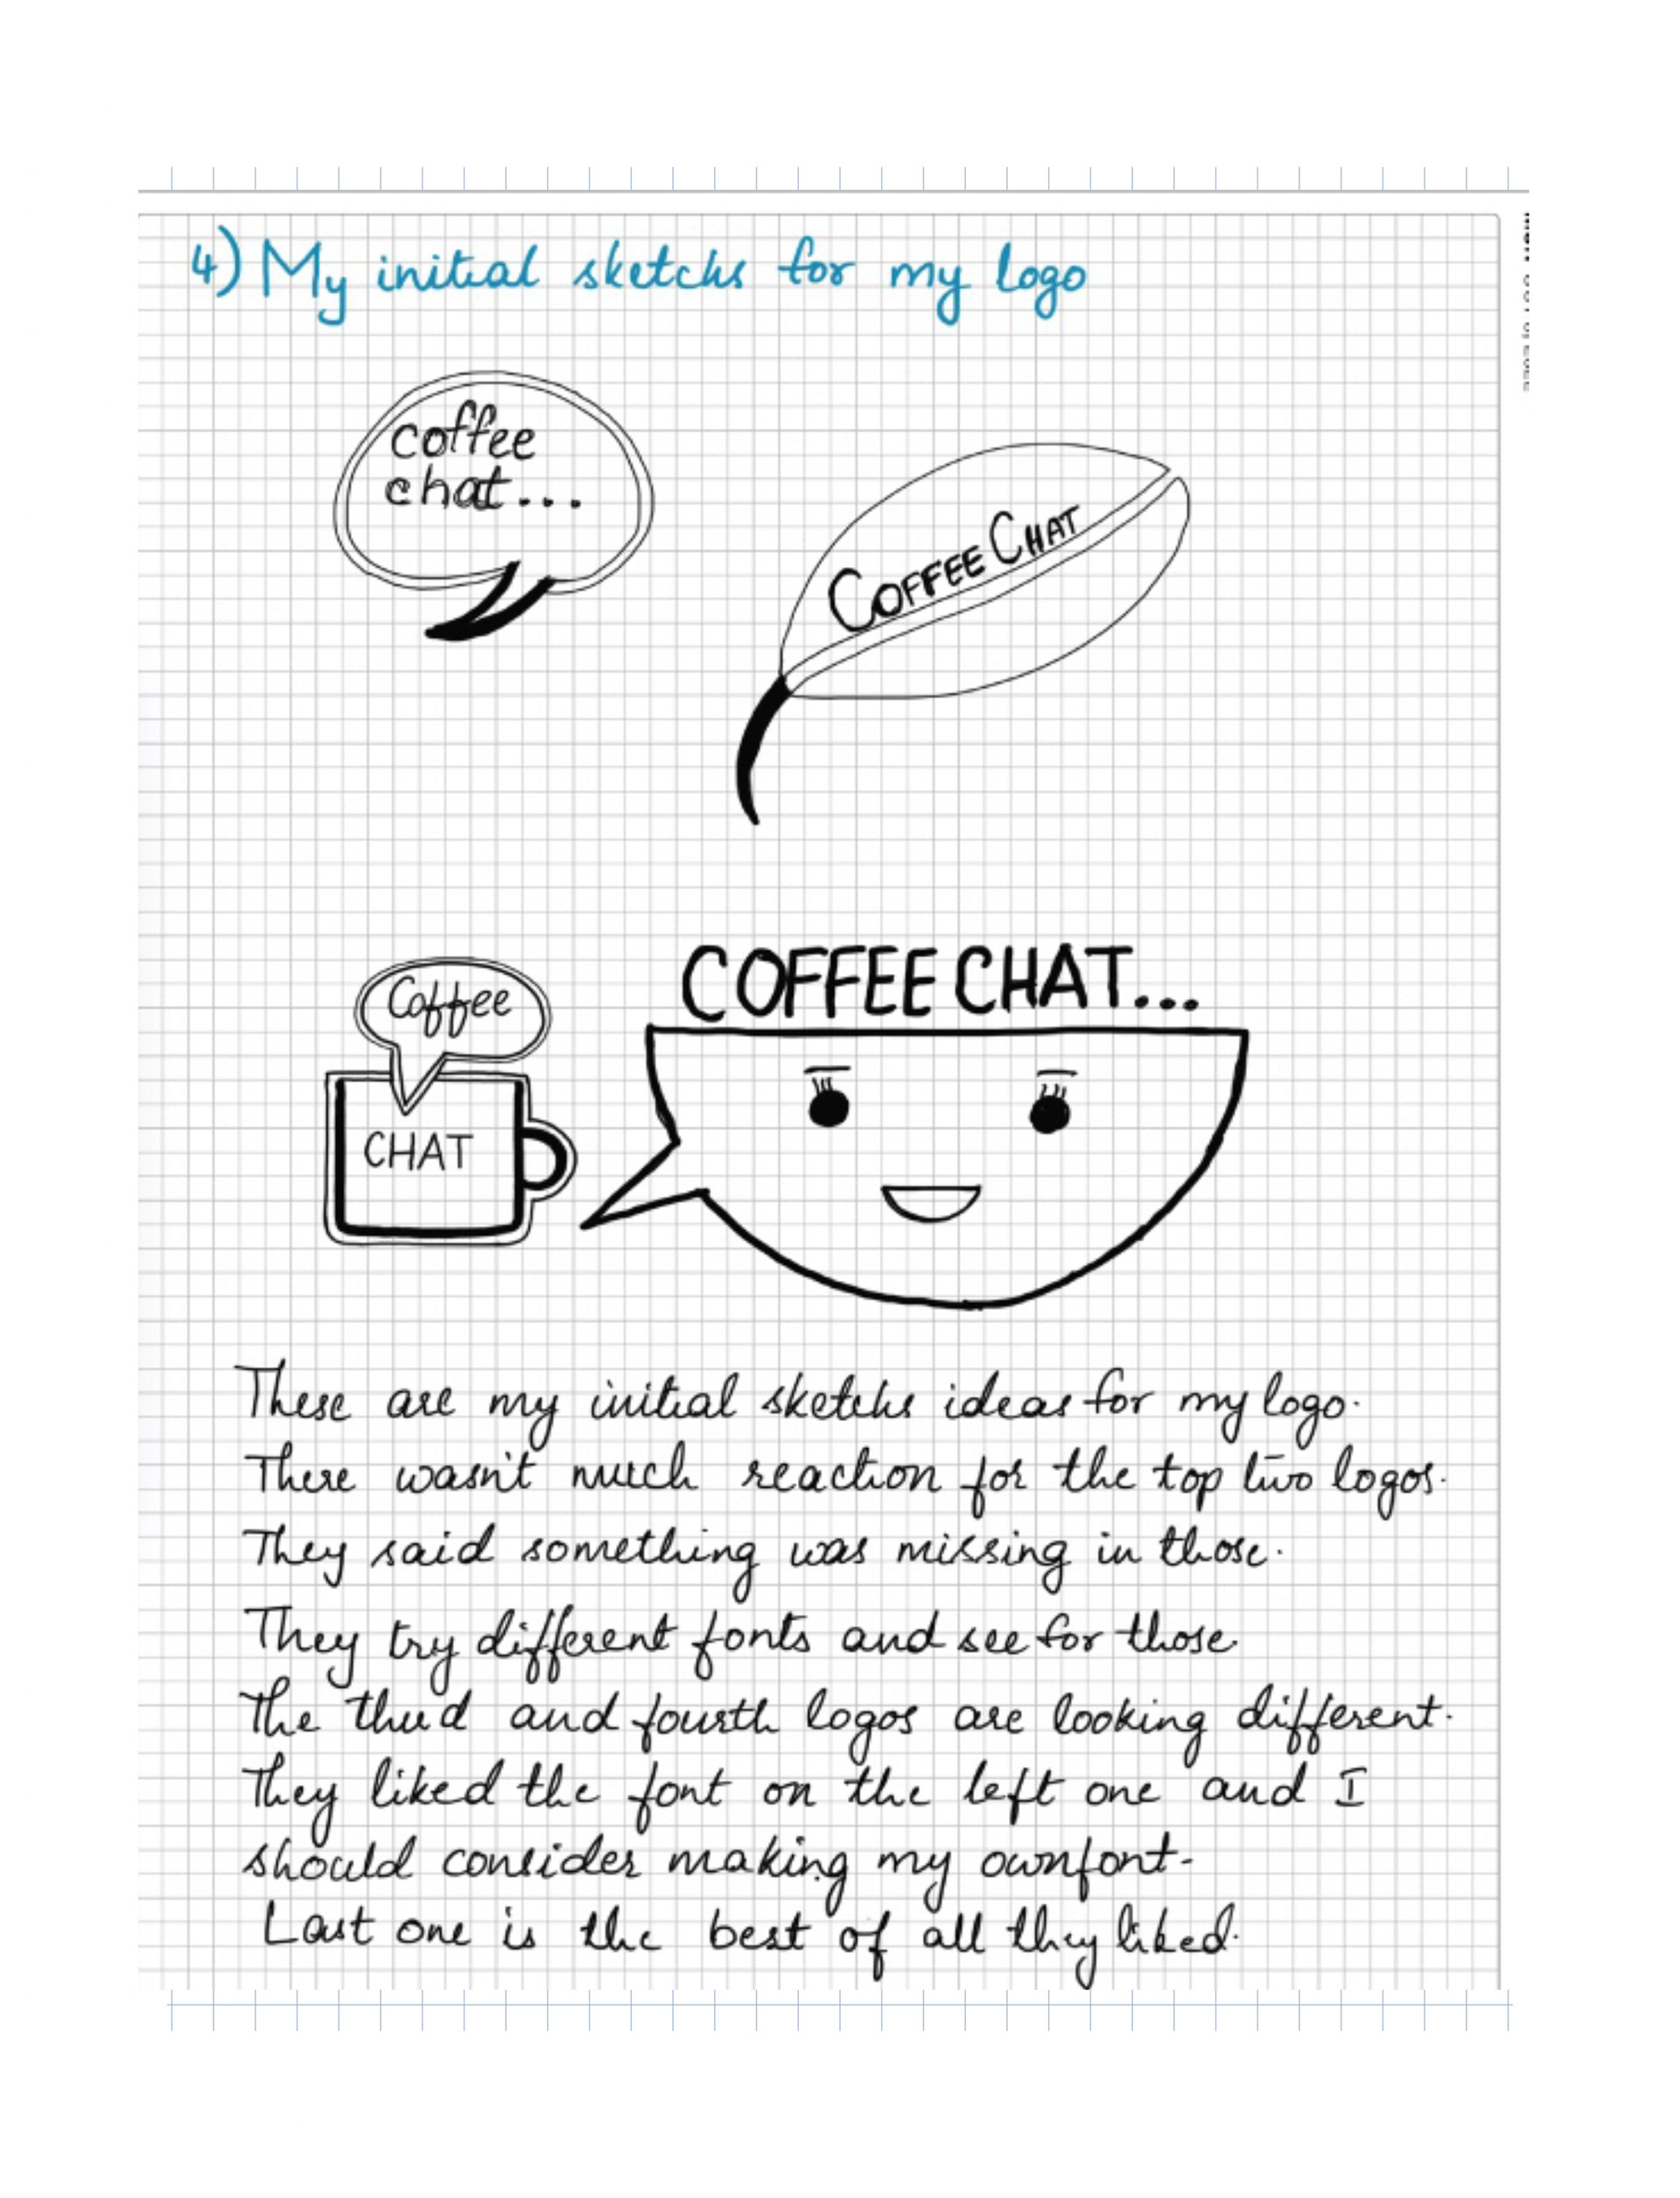 4) My initial sketchs for my logo
coffee
chat...
COFFEE CHAT
Coffee
CHAT
COFFEE CHAT...
These are my initial sketchs ideas for my logo.
There wasn't much reaction for the top two logos.
They said something was missing in those.
They try different fonts and see for those
The third and fourth logos are looking different.
They liked the font on the left one and I
should consider making my ownfont-
Last one is the best of all they liked.